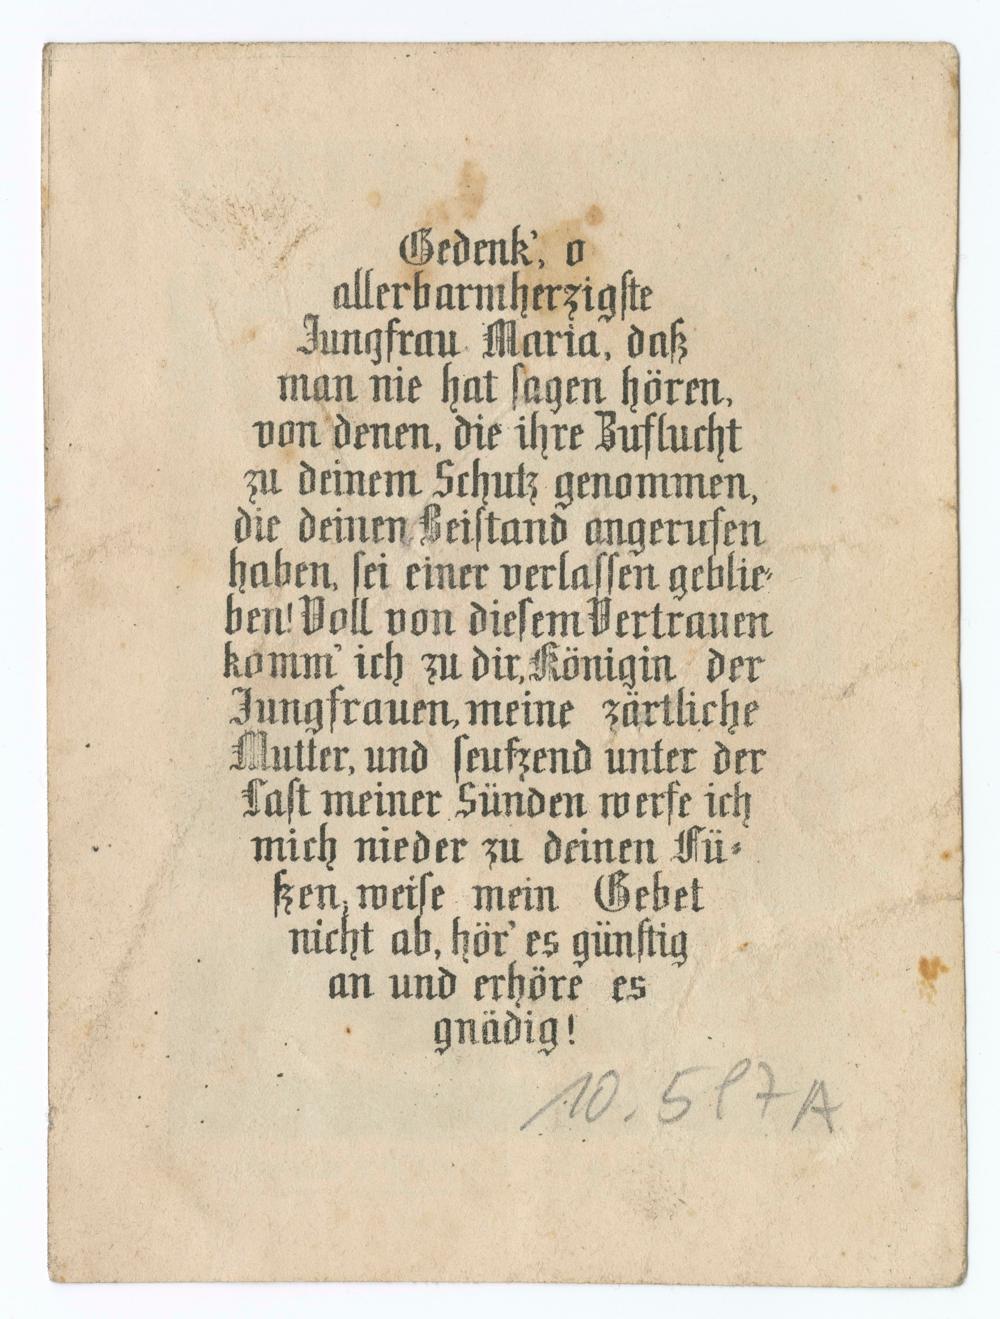 Gedenk', o
allerbarmherzigste
Jungfrau Maria, daß
man nie hat sagen hören,
von denen, die ihre Zuflucht
zu deinem Schutz genommen,
die deinen Beistand angerufen
haben, sei einer verlassen geblie-
ben! Voll von diesem Vertrauen
komm' ich zu dir, Königin der
Jungfrauen, meine zärtliche
Mutter, und seufzend unter der
Last meiner Sünden werfe ich
mich nieder zu deinen Fü-
ßen, weise mein Gebet
nicht ab, hör' es günstig
an und erhöre es
gnädig!
10.597A